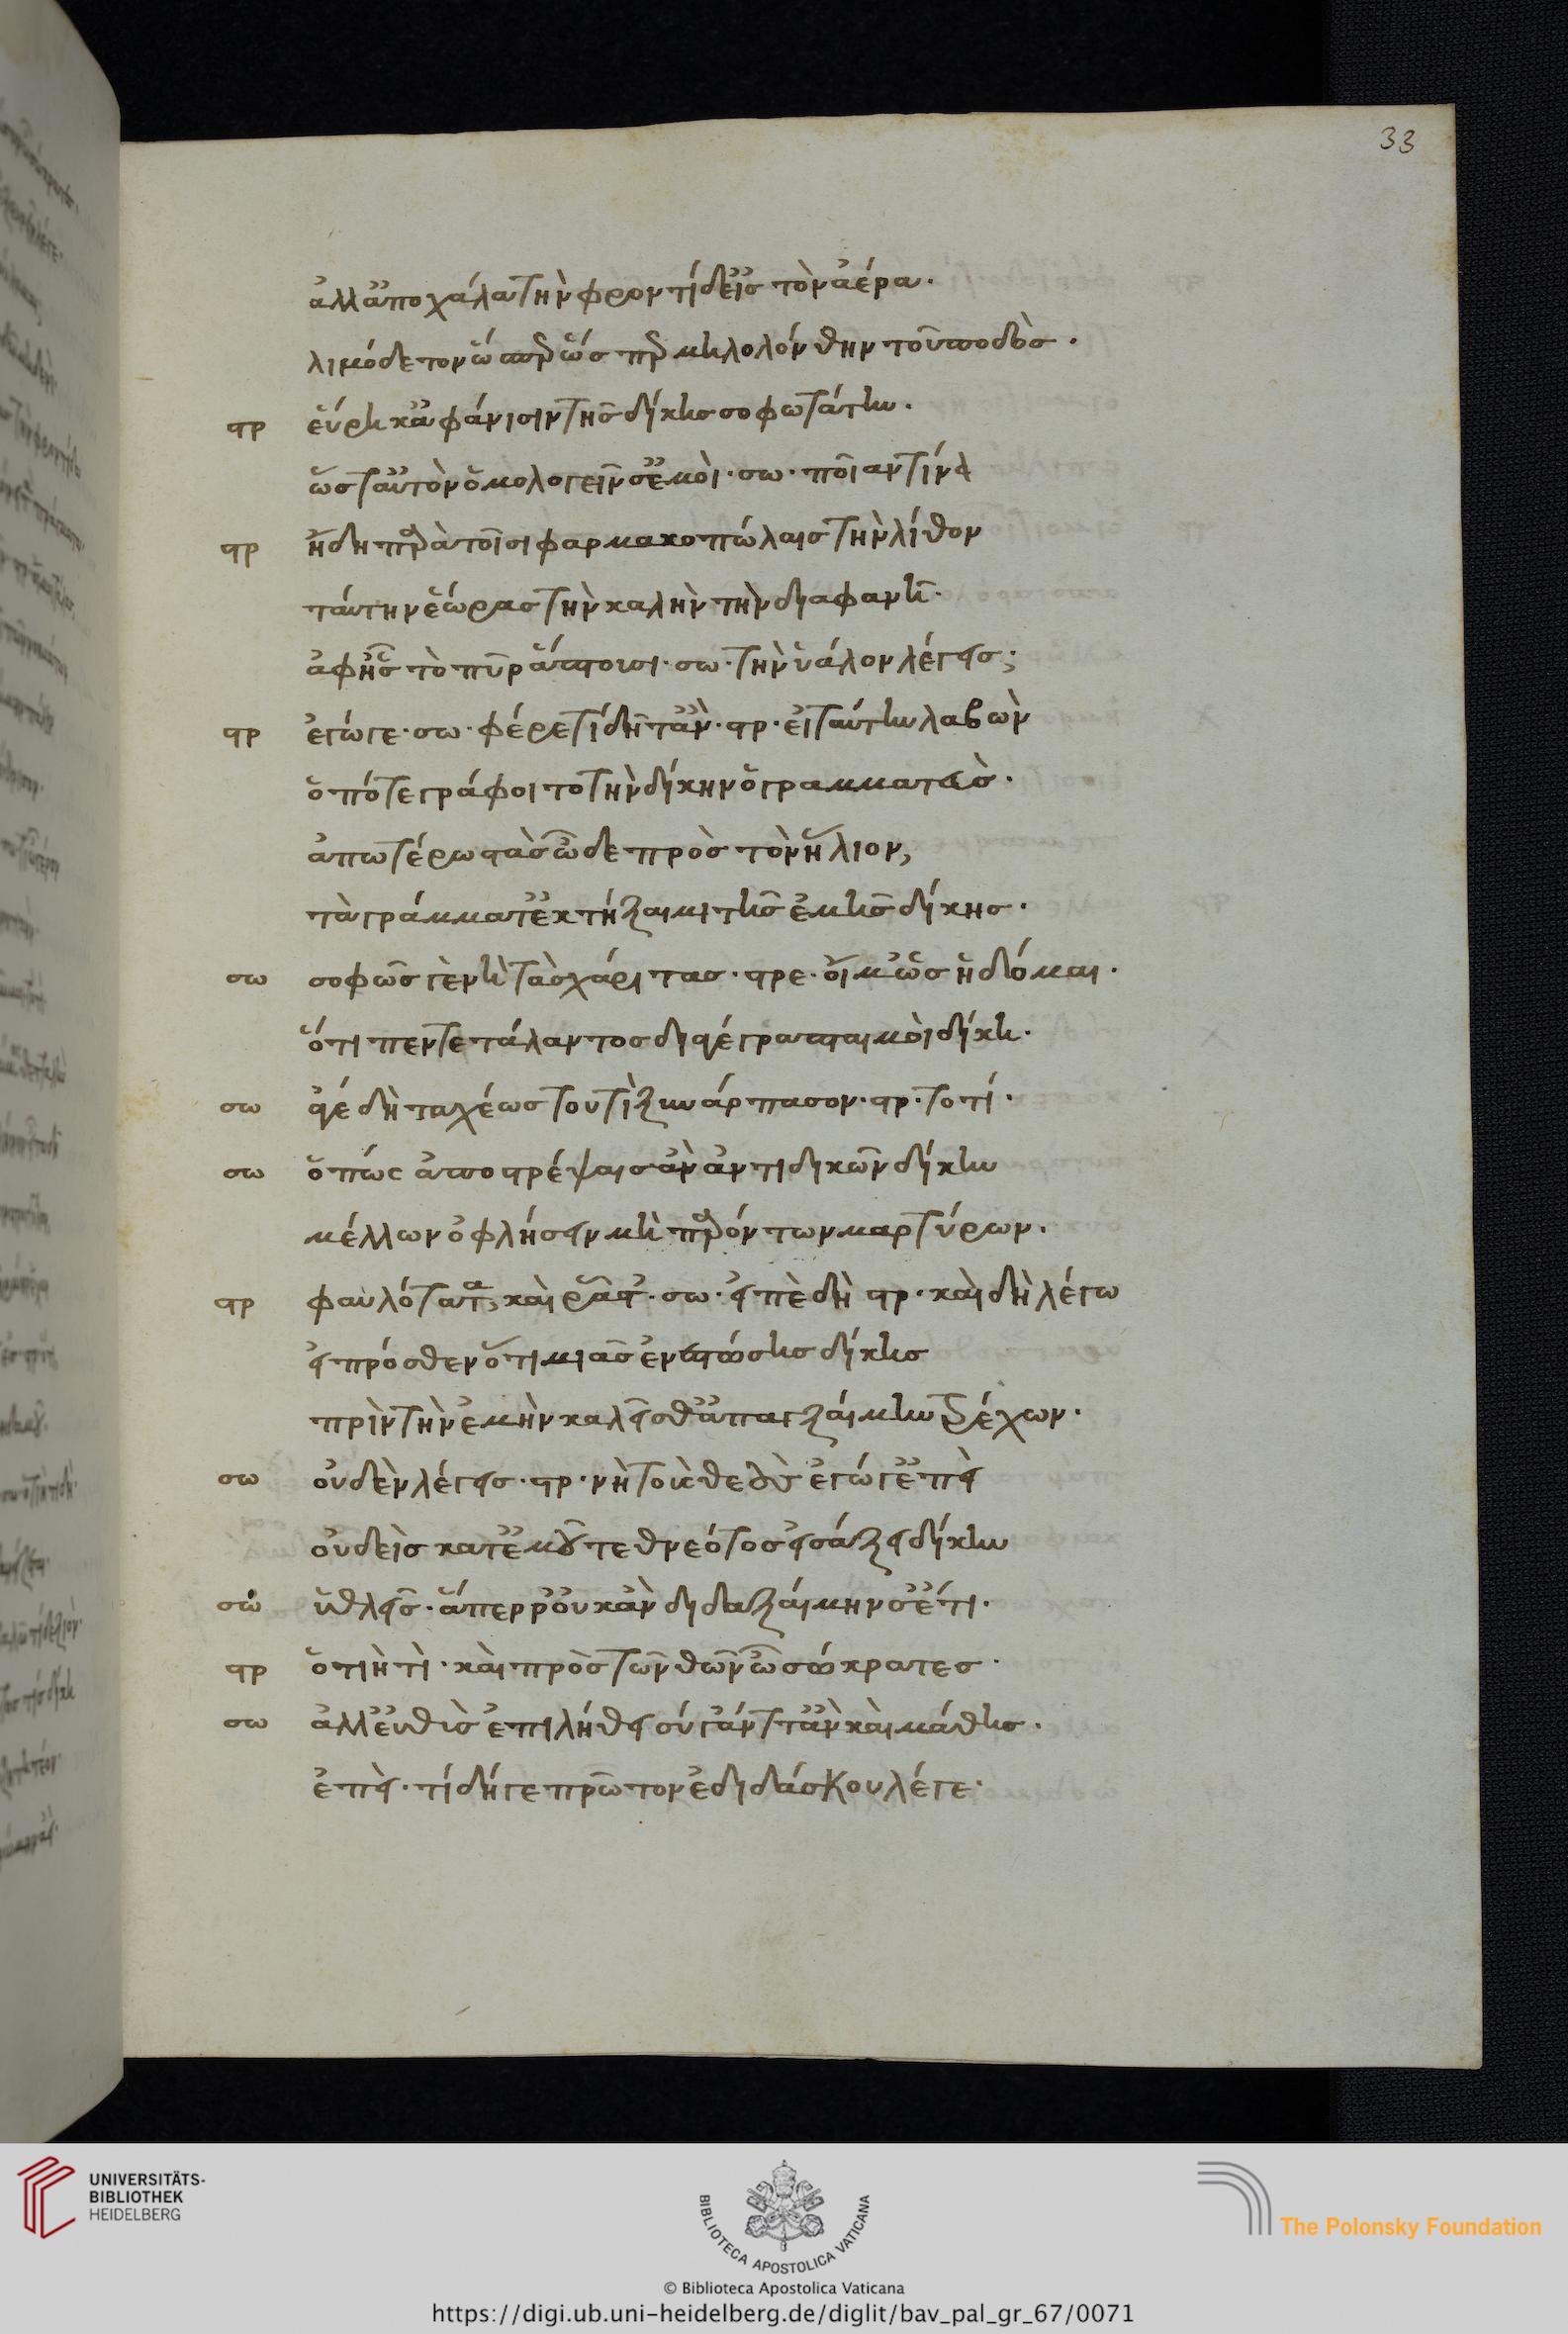 33
ἀλλ' ἀποχάλα τὴν φροντίδ' εἰς τὸν ἀέρα.
λινόδετον ὥσπερ ὥσπερ μηλολόνθην τοῦ ποδός.
στρ εὕρηκ' ἀφάνισιν τῆς δίκης σοφωτάτην.
ὥστ' αὐτὸν ὁμολογεῖν σ' ἐμοί. σω. ποίαν τινά
στρ ἤδη παρὰ τοῖσι φαρμακοπώλαις τὴν λίθον
ταύτην ἑώρας τὴν καλὴν τὴν διαφανῆ.
ἀφ' ἧς τὸ πῦρ ἅπτουσι. σω. τὴν ὑάλον λέγεις;
στρ ἔγωγε. σω. φέρε τί δῆτ' ἄν. στρ. εἰ ταύτην λαβὼν
ὁπότε γράφοιτο τὴν δίκην ὁ γραμματεὺς.
ἀπωτέρω στὰς ὧδε πρὸς τὸν ἥλιον,
τὰ γράμματ' ἐκτήξαιμι τῆς ἐμῆς δίκης.
σω σοφῶς γε νὴ τὰς χάριτας. στρε. οἴμ' ὡς ἥδομαι.
ὅτι πεντετάλαντος διαγέγραπταί μοι δίκη.
σω ἄγε δὴ ταχέως τουτὶ ξυνάρπασον. στρ. τὸ τί.
σω ὅπως ἀποστρέψαις ἂν ἀντιδικῶν δίκην
μέλλων ὀφλήσειν μὴ παρόντων μαρτύρων.
στρ φαυλότατα καὶ ῥᾷστ'. σω. εἰπὲ δή στρ. καὶ δὴ λέγω
εἰ πρόσθεν ὅτι μιᾶς ἐνεστώσης δίκης
πρὶν τὴν ἐμὴν καλεῖσθ' ἀπαγξαίμην τρέχων.
σω οὐδὲν λέγεις. στρ. νὴ τοὺς θεοὺς ἔγωγ' ἐπεὶ
οὐδεὶς κατ' ἐμοῦ τεθνεότος εἰσάξει δίκην
σω ὑθλεῖς. ἄπερρ' οὐκ ἂν διδαξαίμην σ' ἔτι.
στρ ὁτιὴ τί. καὶ πρὸς τῶν θεῶν ὦ σώκρατες.
σω ἀλλ' εὐθὺς ἐπιλήθει σύ γ' ἅττ' ἂν καὶ μάθης.
ἐπεὶ. τί δή γε πρῶτον ἐδιδάσκου λέγε.
UNIVERSITÄTS-
BIBLIOTHEK
HEIDELBERG
BIBLIOTECA APOSTOLICA VATICANA
The Polonsky Foundation
© Biblioteca Apostolica Vaticana
https://digi.ub.uni-heidelberg.de/diglit/bav_pal_gr_67/0071